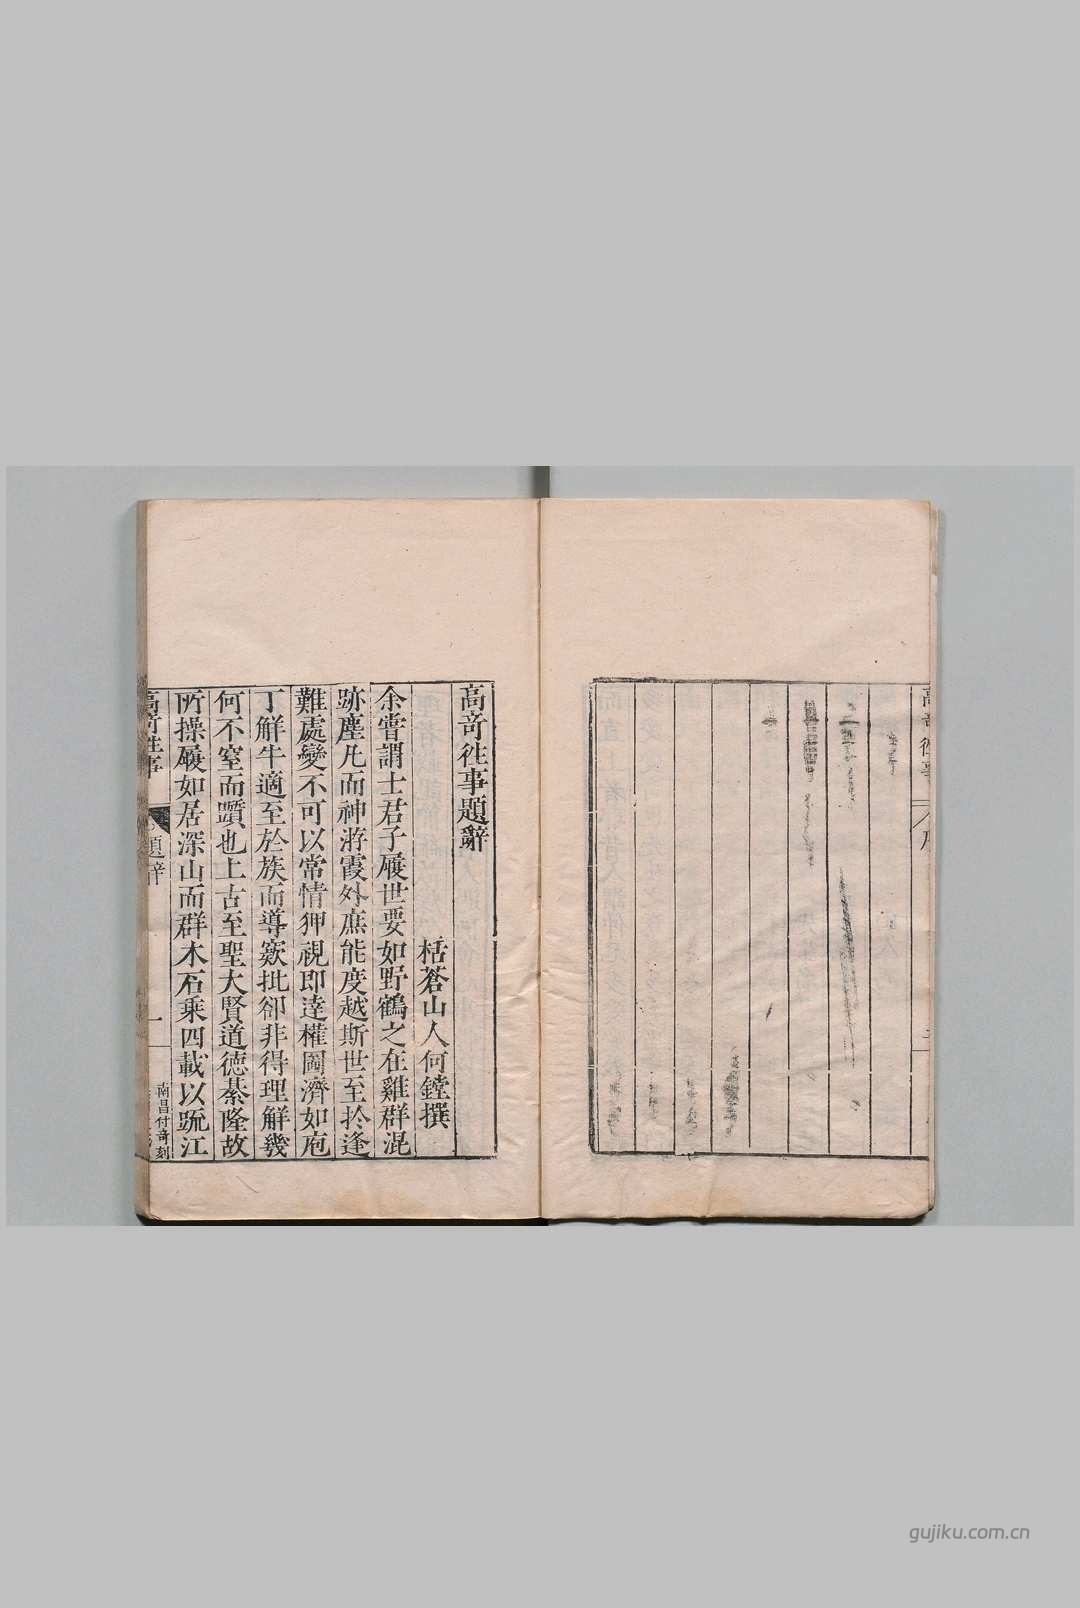 高奇徃事
高竒徃事題辭
栝蒼山人何鏜撰
余嘗謂士君子履世要如野鶴之在雞群混
跡塵凡而神游霞外庶能度越斯世至於逢
難處變不可以常情狎視即達權圖濟如庖
丁解牛適至於族而導窾批卻非得理解幾
何不窒而躓也上古至聖大賢道德綦隆故
所操履如居深山而群木石乘四載以疏江
高竒徃事
題辭
一
南昌付竒刻
gujiku.com.cn